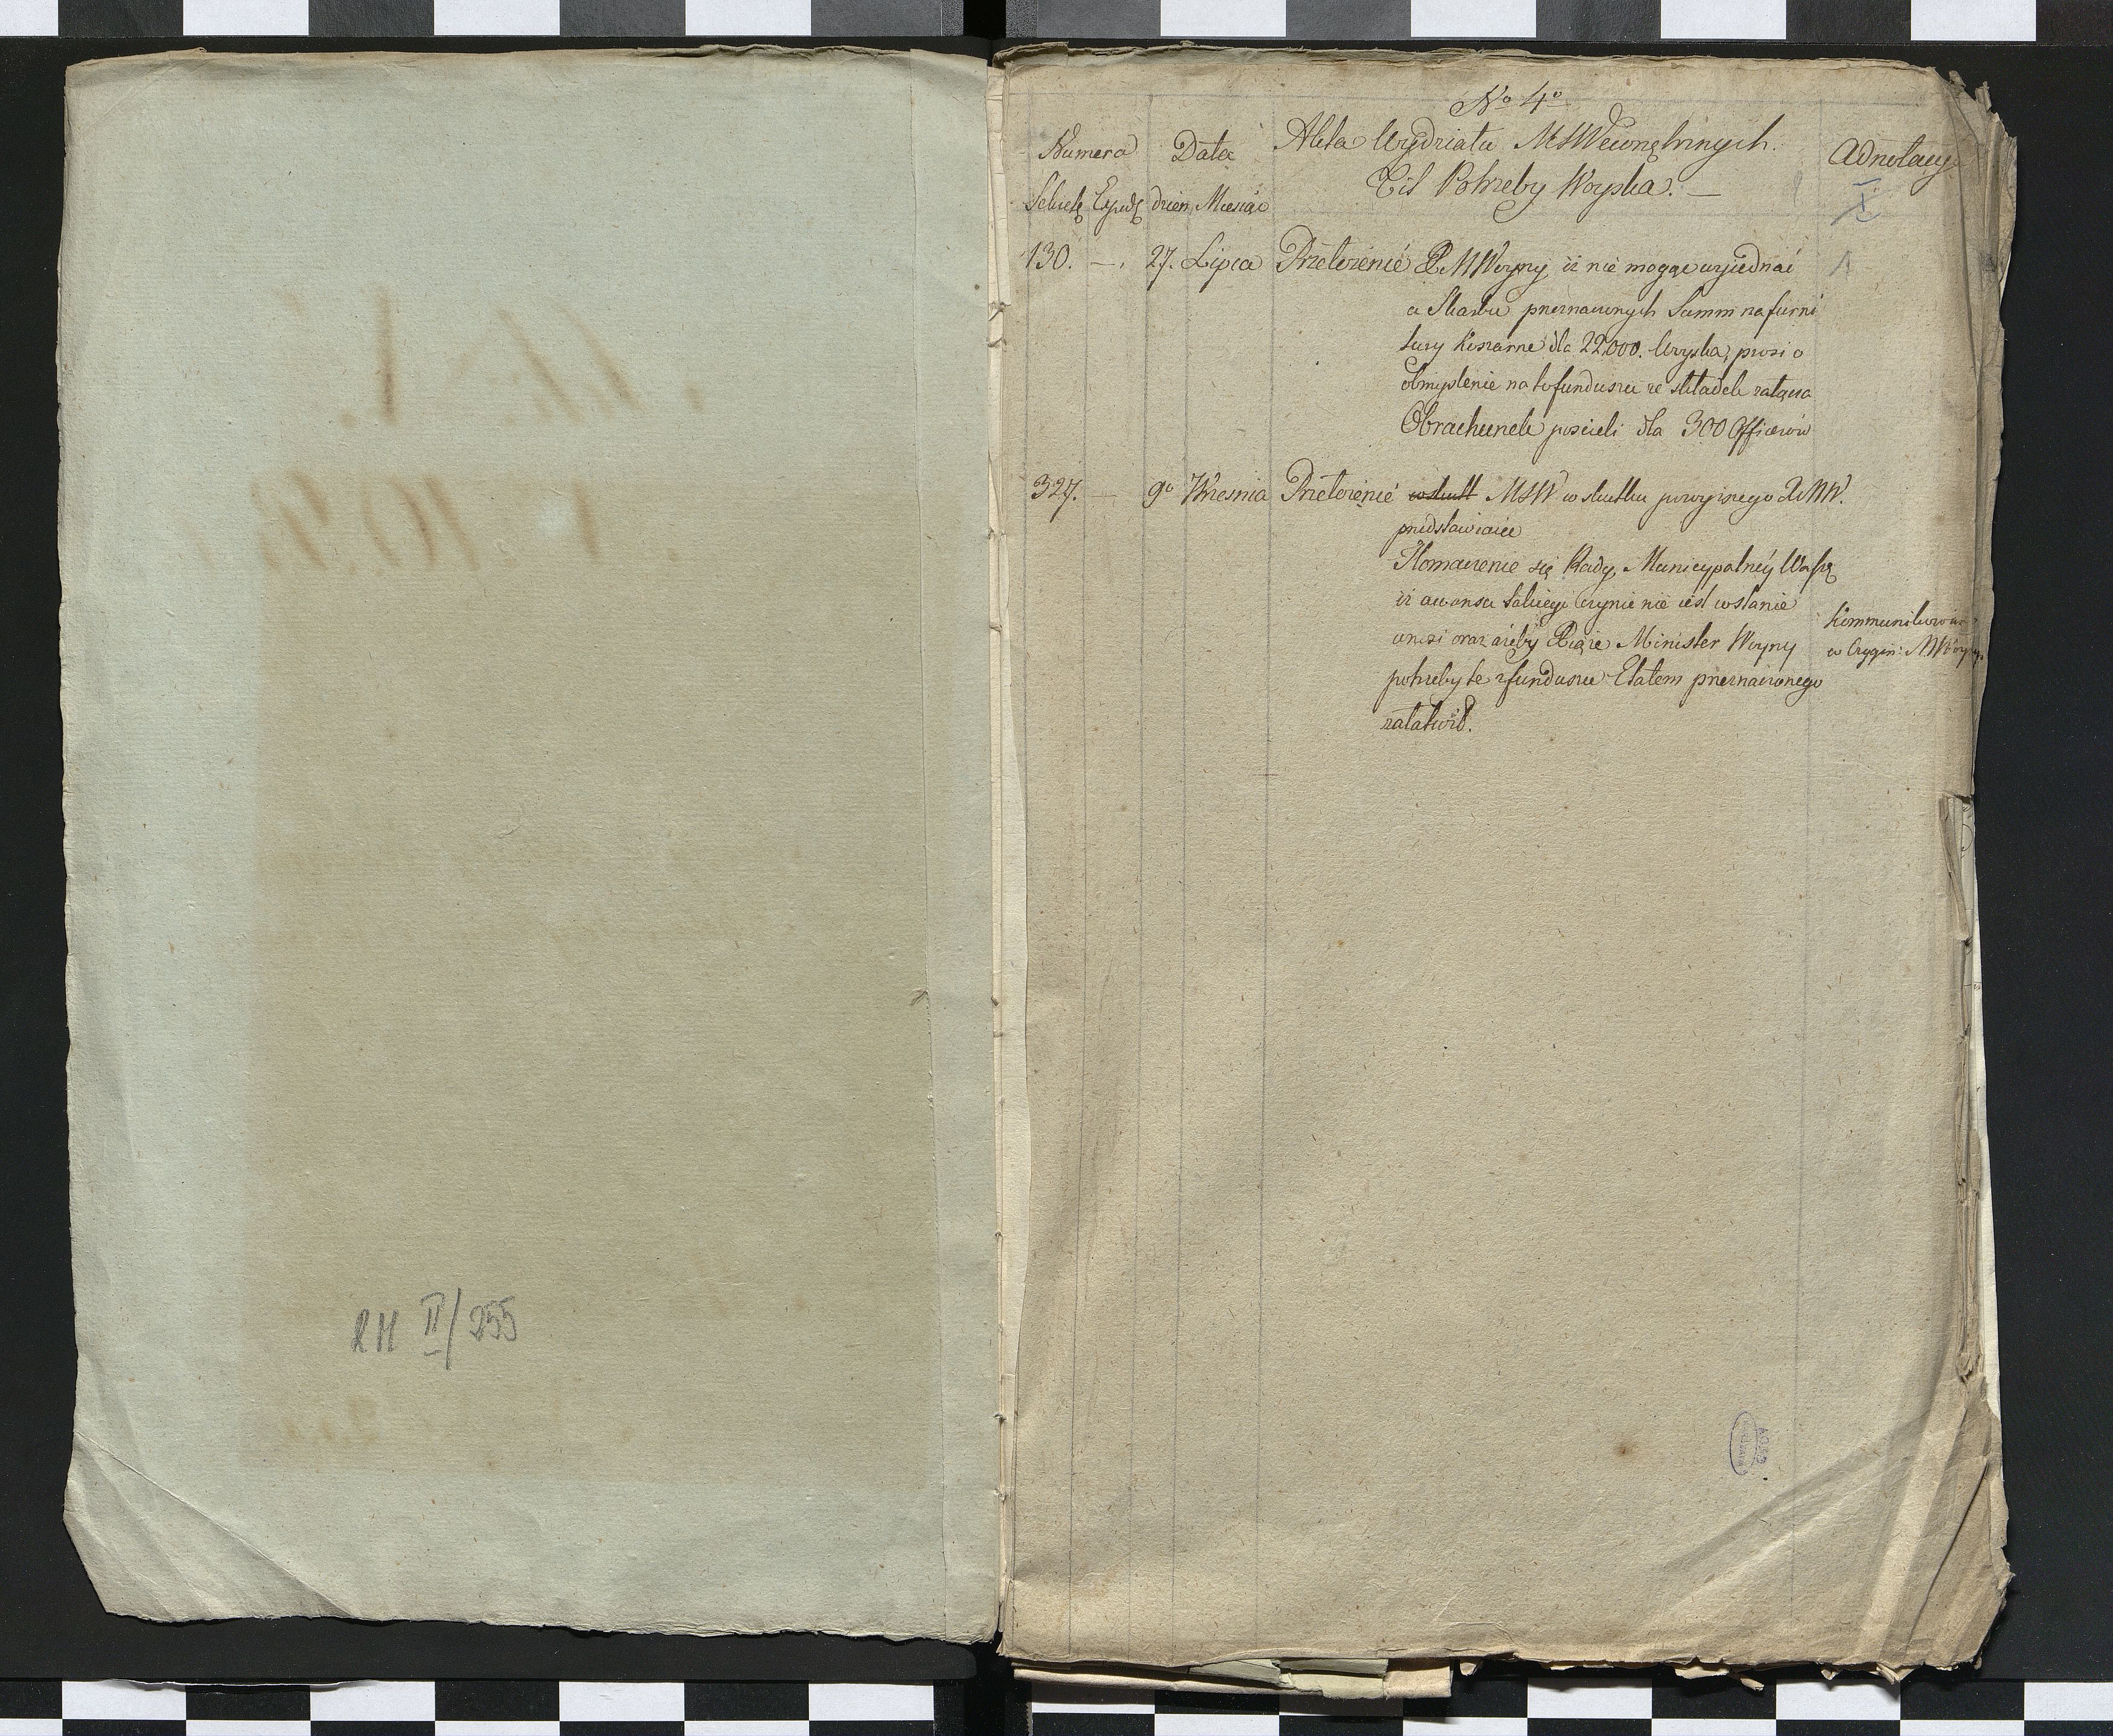 RM II/255
No 4o
Numera Data Akta Wydziału MSWewnętrznych. Adnotacye
Tit Potrzeby Woyska. —
dzien Miesiąc
I
130. — 27. Lipca Przełożenie XMWoyny, iż nie mogąc wyiednać 1
a Skarbu przeznaczonych Summ na furni
tury Koszarne dla 22000. Woyska, prosi o
obmyslenie na to funduszu ze składek załącza
Obrachunek poscieli dla 300 Officerów
327. — 9o Wrzesnia Przełożenie wskutt MSW w skutku powyższego XMW.
przedstawiaiące
Tłomaczenie się Rady Municypalnéy Warsz
iż awansu takiego czynic nie iest wstanie
wnosi oraz ażeby Xiąże Minister Woyny
potrzeby te z funduszu Etatem przeznaczonego
załatwił.
Kommunikowano
w Orygin: MWoyny